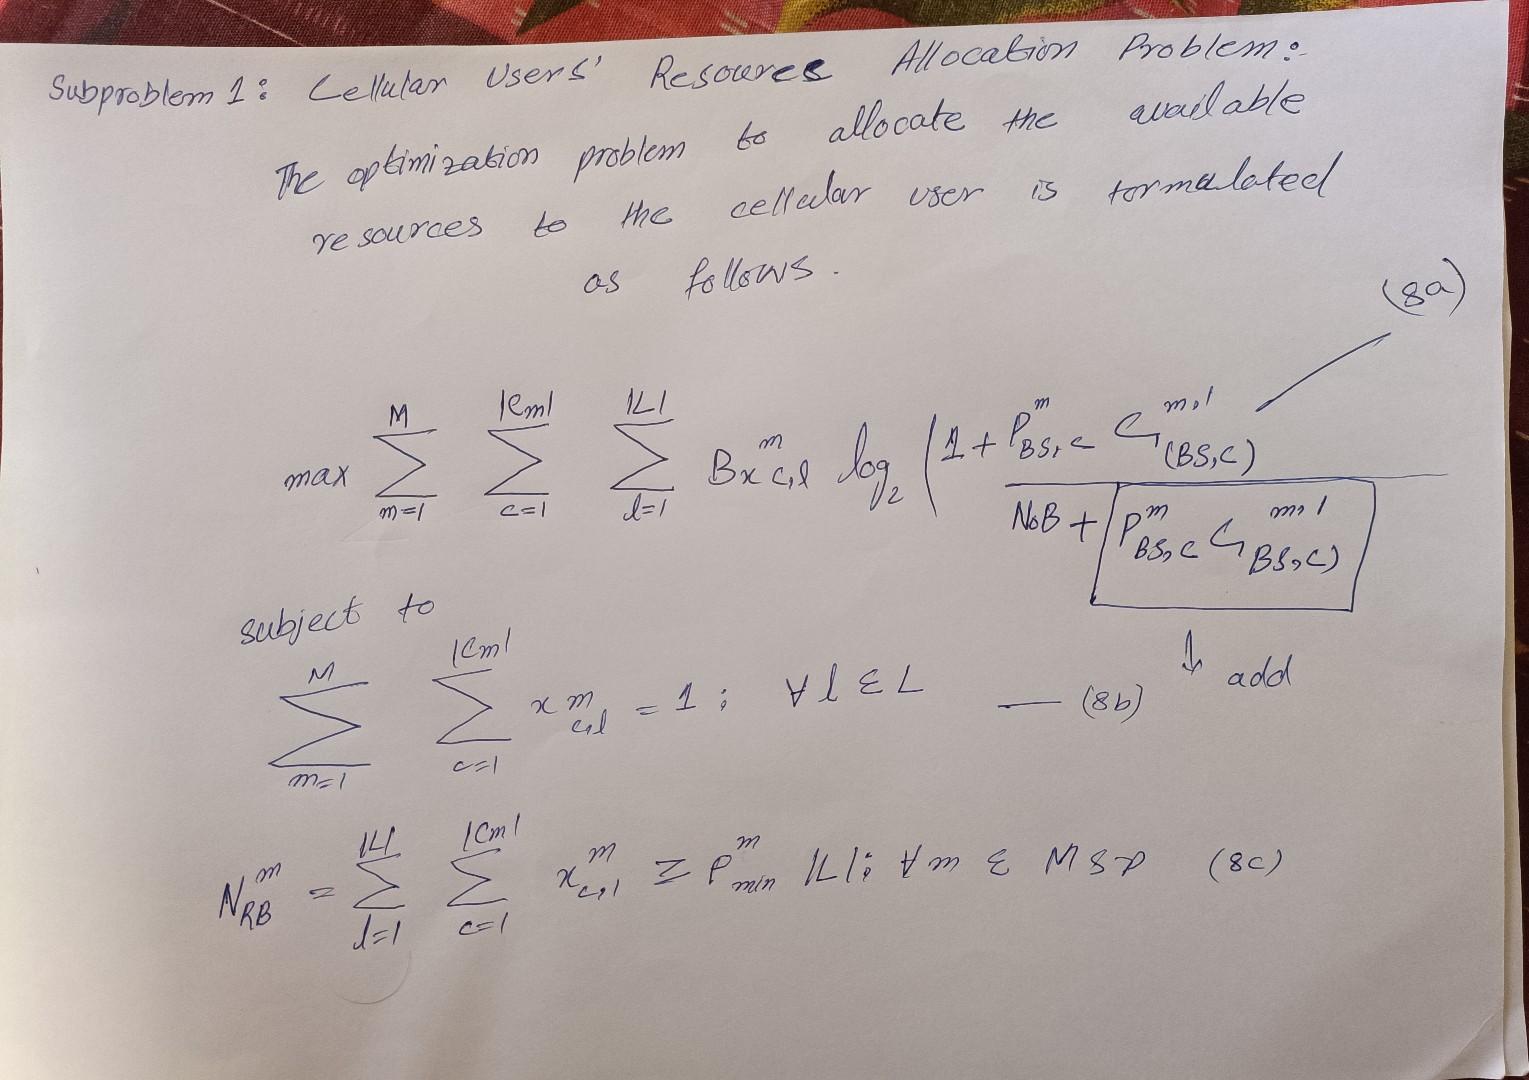 Subproblem 1: Cellular Users' Resources Allocation Problem:-
The optimization problem to allocate the available
resources to the cellular user is formulated
as follows.
(8a)
max ∑_{m=1}^{M} ∑_{c=1}^{|Cm|} ∑_{l=1}^{|L|} B x^m_{c,l} log_2 (1 + P^m_{BS,c} G^{m,l}_{(BS,C)}
N0B + P^m_{BS,C} G^{m,l}_{BS,C)}
subject to
↓ add
∑_{m=1}^{M} ∑_{c=1}^{|Cm|} x^m_{c,l} = 1; ∀ l ε L — (8b)
N^m_{RB} = ∑_{l=1}^{|L|} ∑_{c=1}^{|Cm|} x^m_{c,l} ≥ P^m_{min} |L|; ∀ m ε MSP (8c)